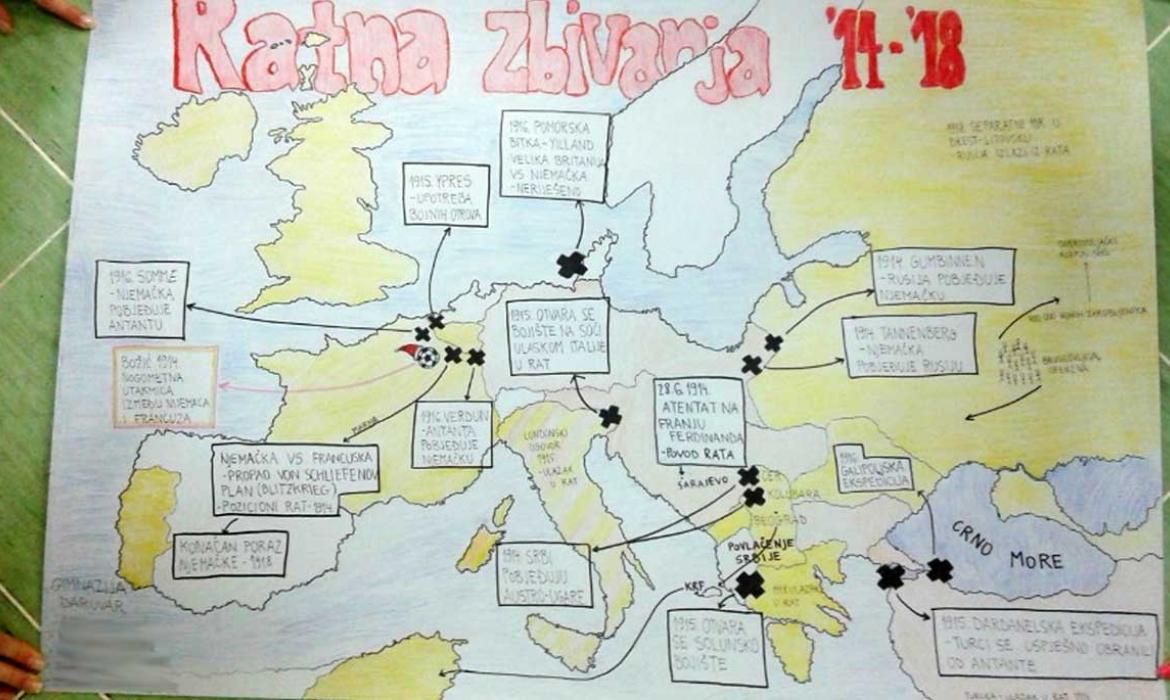 Ratna zbivanja '14-'18
1916. POMORSKA
BITKA-YILLAND
VELIKA BRITANIJA
VS NJEMAČKA
-NERIJEŠENO
1915. YPRES
-UPOTREBA
BOJNIH OTROVA
1916. SOMME
-NJEMAČKA
POBJEĐUJE
ANTANTU
BOŽIĆ 1914.
NOGOMETNA
UTAKMICA
IZMEĐU NIJEMACA
I FRANCUZA
1915. OTVARA SE
BOJIŠTE NA SOČI
ULASKOM ITALIJE
U RAT
1914. GUMBINNEN
-RUSIJA POBJEĐUJE
NJEMAČKU
1914. TANNENBERG
-NJEMAČKA
POBJEĐUJE RUSIJU
BREST-LITOVSKU
-RUSIJA IZLAZI IZ RATA
28.6.1914.
ATENTAT NA
FRANJU
FERDINANDA
-POVOD RATA
SARAJEVO
1916. VERDUN
-ANTANTA
POBJEĐUJE
NJEMAČKU
MARNE
NJEMAČKA VS FRANCUSKA
-PROPAO VON SCHLIEFENOV
PLAN (BLITZKRIEG)
-POZICIONI RAT-1914.
KONAČAN PORAZ
NJEMAČKE-1918
LONDONSKI
UGOVOR
1915.
-ULAZAK
U RAT
GALIPOLJSKA
EKSPEDICIJA
CER
KOLUBARA
BEOGRAD
POVLAČENJE
SRBIJE
KRF
U RAT
1914. SRBI
POBJEĐUJU
AUSTRO-UGARE
1915. OTVARA
SE SOLUNSKO
BOJIŠTE
CRNO
MORE
1915. DARDANELSKA EKSPEDICIJA
-TURCI SE USPJEŠNO OBRANILI
OD ANTANTE
GIMNAZIJA
DARUVAR